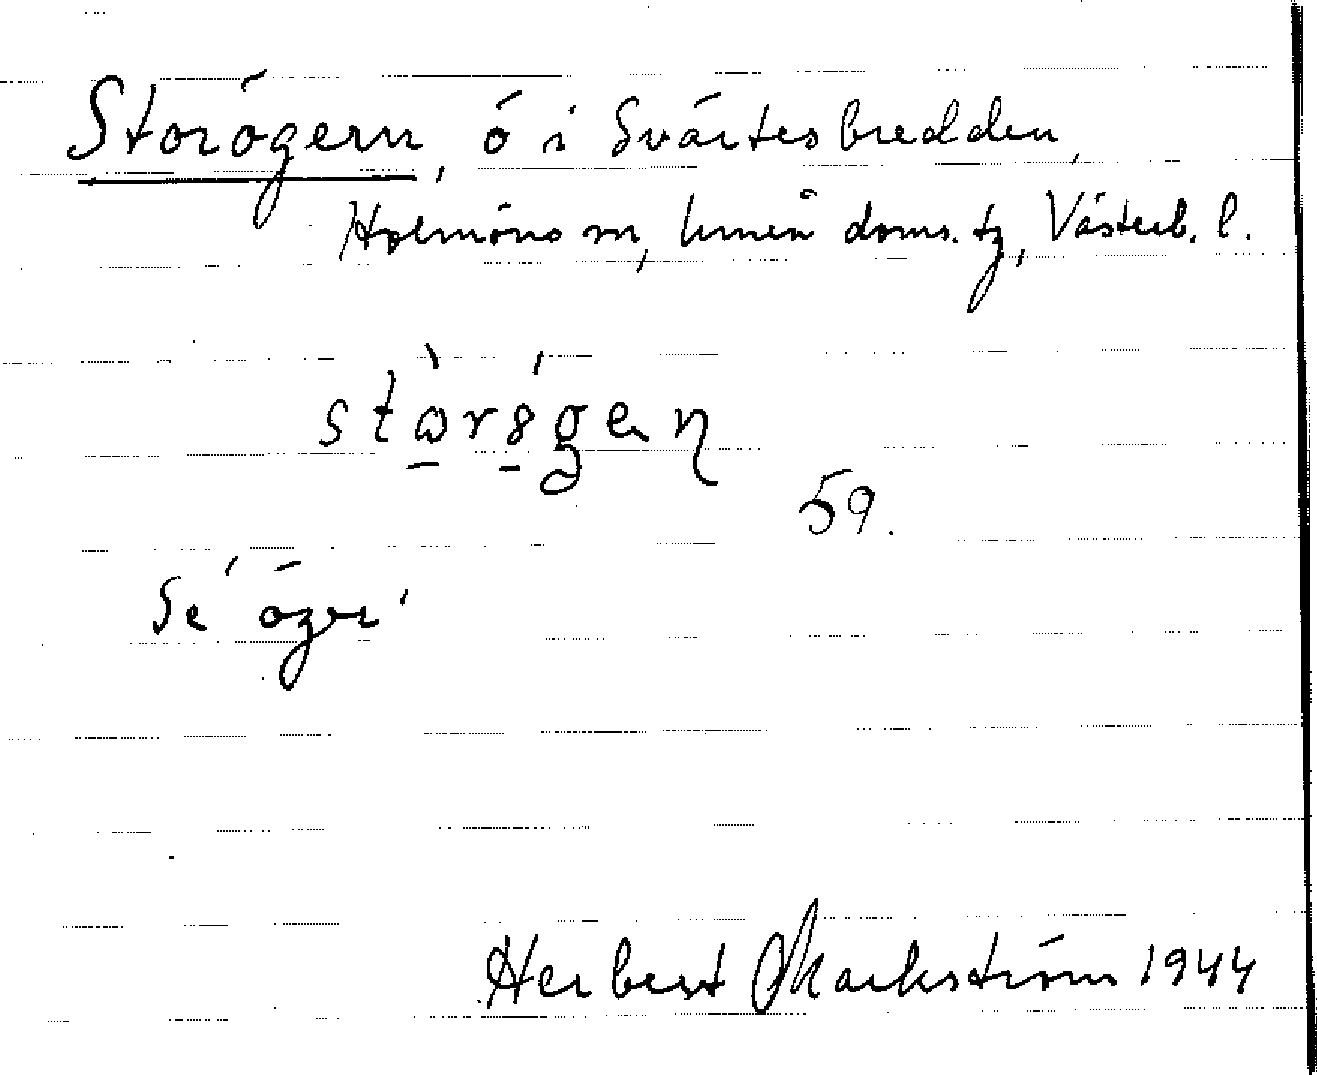 Storögern, ö i Svärtesbredden,
Holmöns sn, Umeå doms. tg, Västerb. l.
59.
Se 'öger'
Herbert Markström 1944